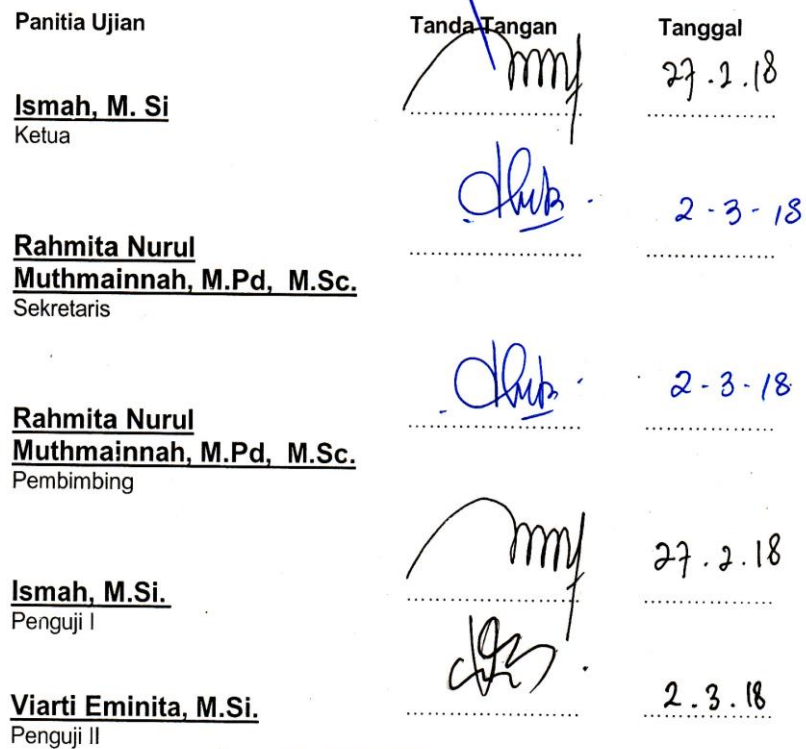 Panitia Ujian Tanda Tangan Tanggal
Ismah, M. Si 27.2.18
Ketua
2-3-18
Rahmita Nurul
Muthmainnah, M.Pd, M.Sc.
Sekretaris
2-3-18
Rahmita Nurul
Muthmainnah, M.Pd, M.Sc.
Pembimbing
27.2.18
Ismah, M.Si.
Penguji I
Viarti Eminita, M.Si. 2.3.18
Penguji II